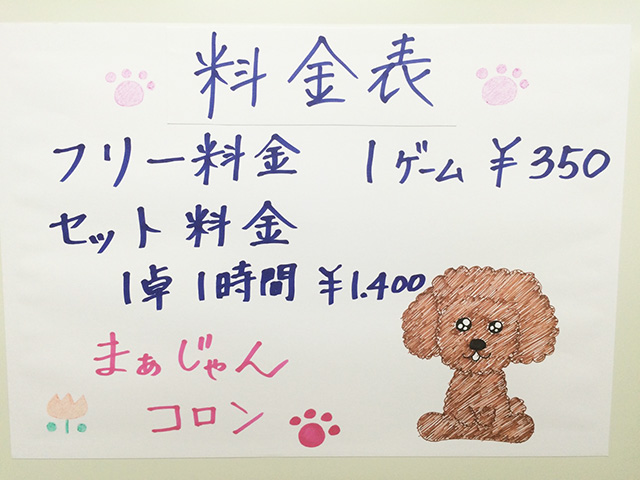 料金表
フリー料金 1ゲーム ¥350
セット料金
1卓 1時間 ¥1.400
まぁじゃん
コロン